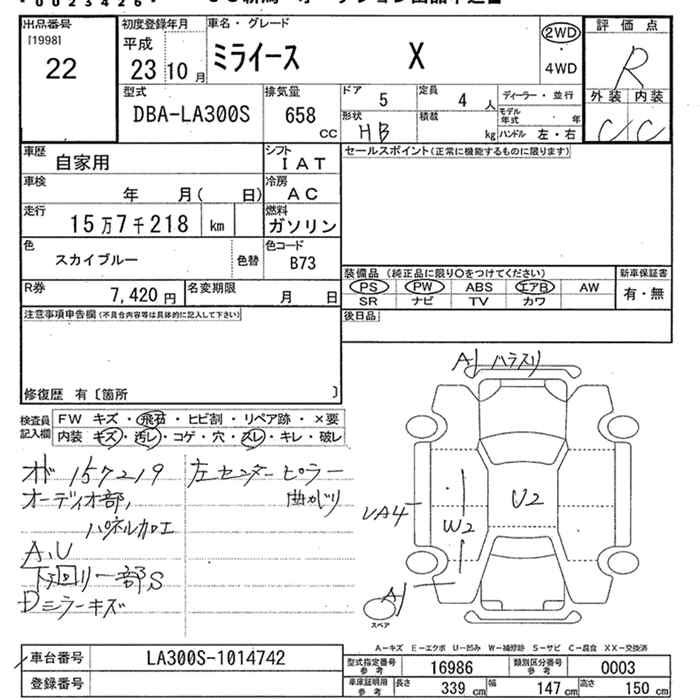 0023426
出品番号
[1998]
22
初度登録年月
平成
23 10月
車名・グレード
ミライース X
2WD
・
4WD
評価点
R
外装 内装
C C
型式
DBA-LA300S
排気量
658
CC
ドア 5
定員 4 人
ディーラー・並行
形状 HB
積載 kg
モデル年式 年
ハンドル 左・右
車歴
自家用
シフト
IAT
セールスポイント(正常に機能するものに限ります)
車検
年 月( 日)
冷房
AC
走行
15万7千218 km
燃料
ガソリン
色
スカイブルー
色替
色コード
B73
装備品(純正品に限り○をつけてください)
PS PW ABS エアB AW
SR ナビ TV カワ
新車保証書
有・無
R券
7,420円
名変期限
月 日
後日品
注意事項申告欄(不具合内容等は具体的に記入して下さい)
修復歴 有〔箇所 〕
検査員記入欄
FW キズ・飛石・ヒビ割・リペア跡・×要
内装 キズ・汚レ・コゲ・穴・スレ・キレ・破レ
オド 157219
オーディオ部、
パネル加工
A、U
下回り一部S
Dミラーキズ
左センターピラー
曲がり
A
ハラスリ
UA4
W2
U2
A
スペア
A―キズ E―エクボ U―凹み W―補修跡 S―サビ C―腐食 XX―交換済
車台番号
LA300S-1014742
登録番号
型式指定番号 参考
16986
類別区分番号 参考
0003
車庫証明用 参考
長さ 339 cm
幅 147 cm
高さ 150 cm